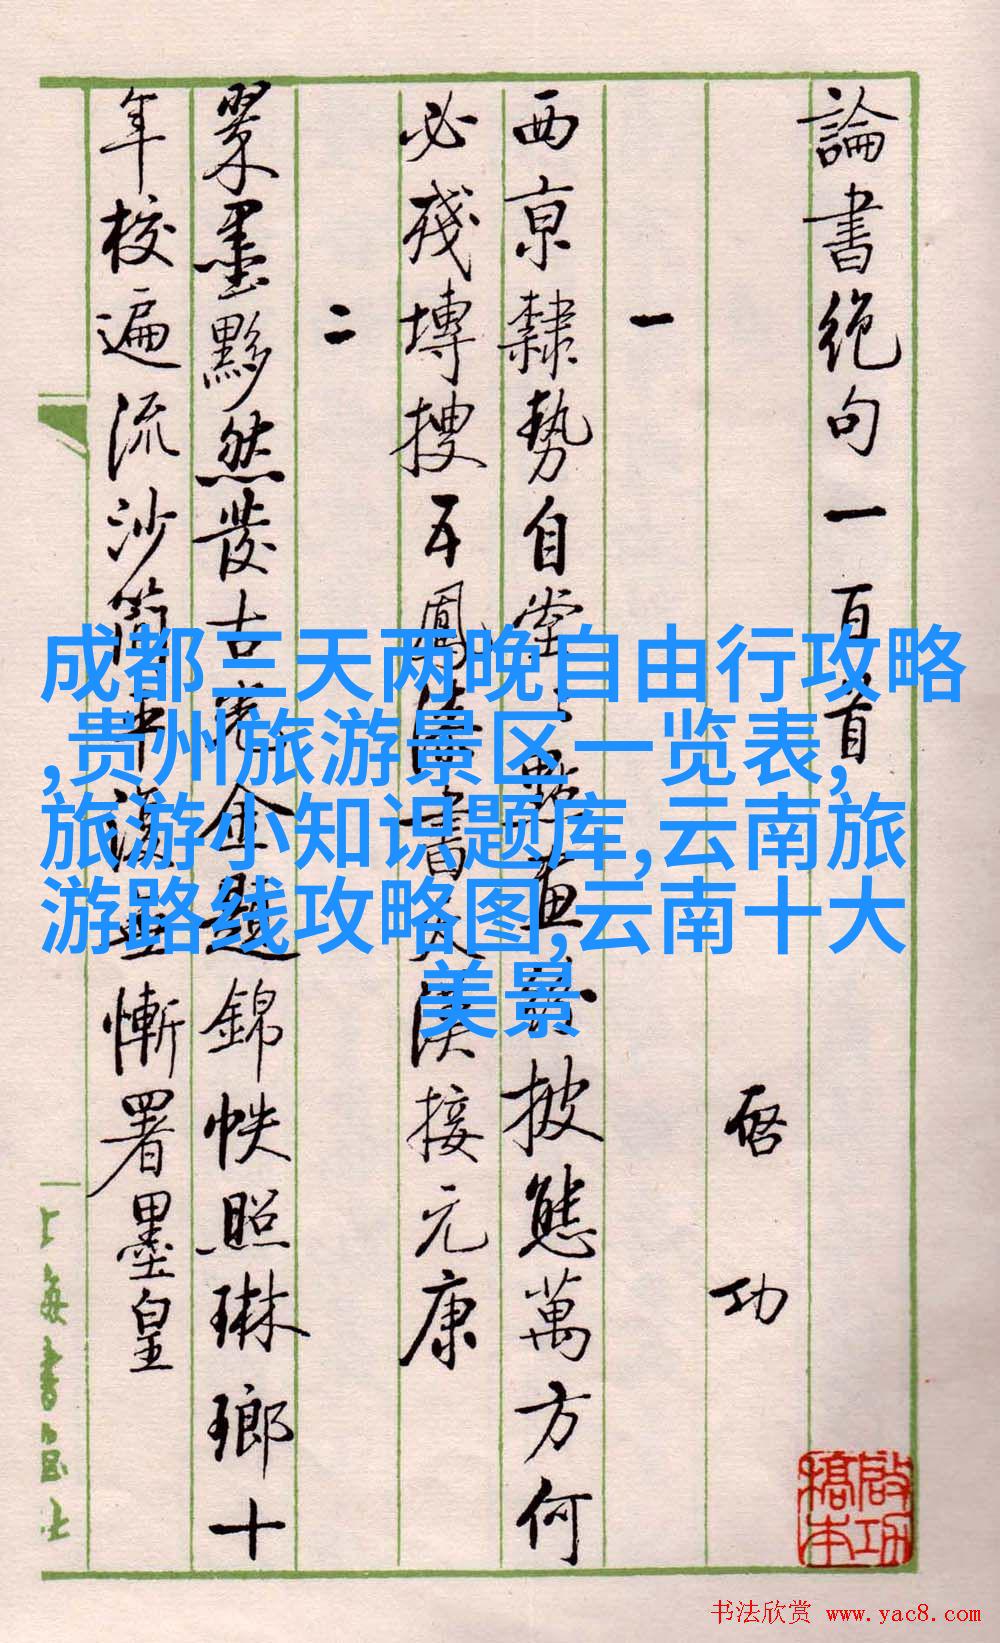 論書絕句一百首
啓功
一
西京隸勢自堂堂點畫紛披態萬方何
必殘塼搜五鳳漢書大漢接元康
二
翠墨黟然發古光金題錦帙照琳瑯十
年校遍流沙簡平復無慚署墨皇
啟功
稿本
上海書画社
成都三天两晚自由行攻略
,贵州旅游景区一览表,
旅游小知识题库,云南旅
游路线攻略图,云南十大
美景
书法欣赏 www.yac8.com